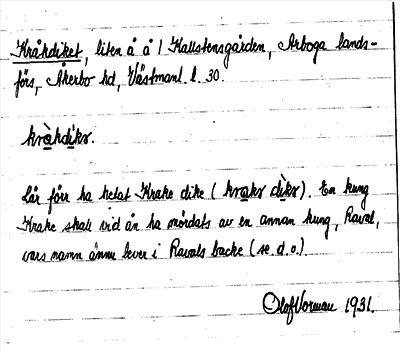 Kråkdiket, liten å å 1 Kallstensgården, Arboga lands-
förs, Åkerbo hd, Västmanl. l. 30.
kràkdìkr.
Lär förr ha hetat Krake dike (krakr dìkr). En kung
Krake skall vid ån ha mördats av en annan kung, Raval,
vars namn ännu lever i Ravals backe (se d.o.).
Olof Vorman 1931.